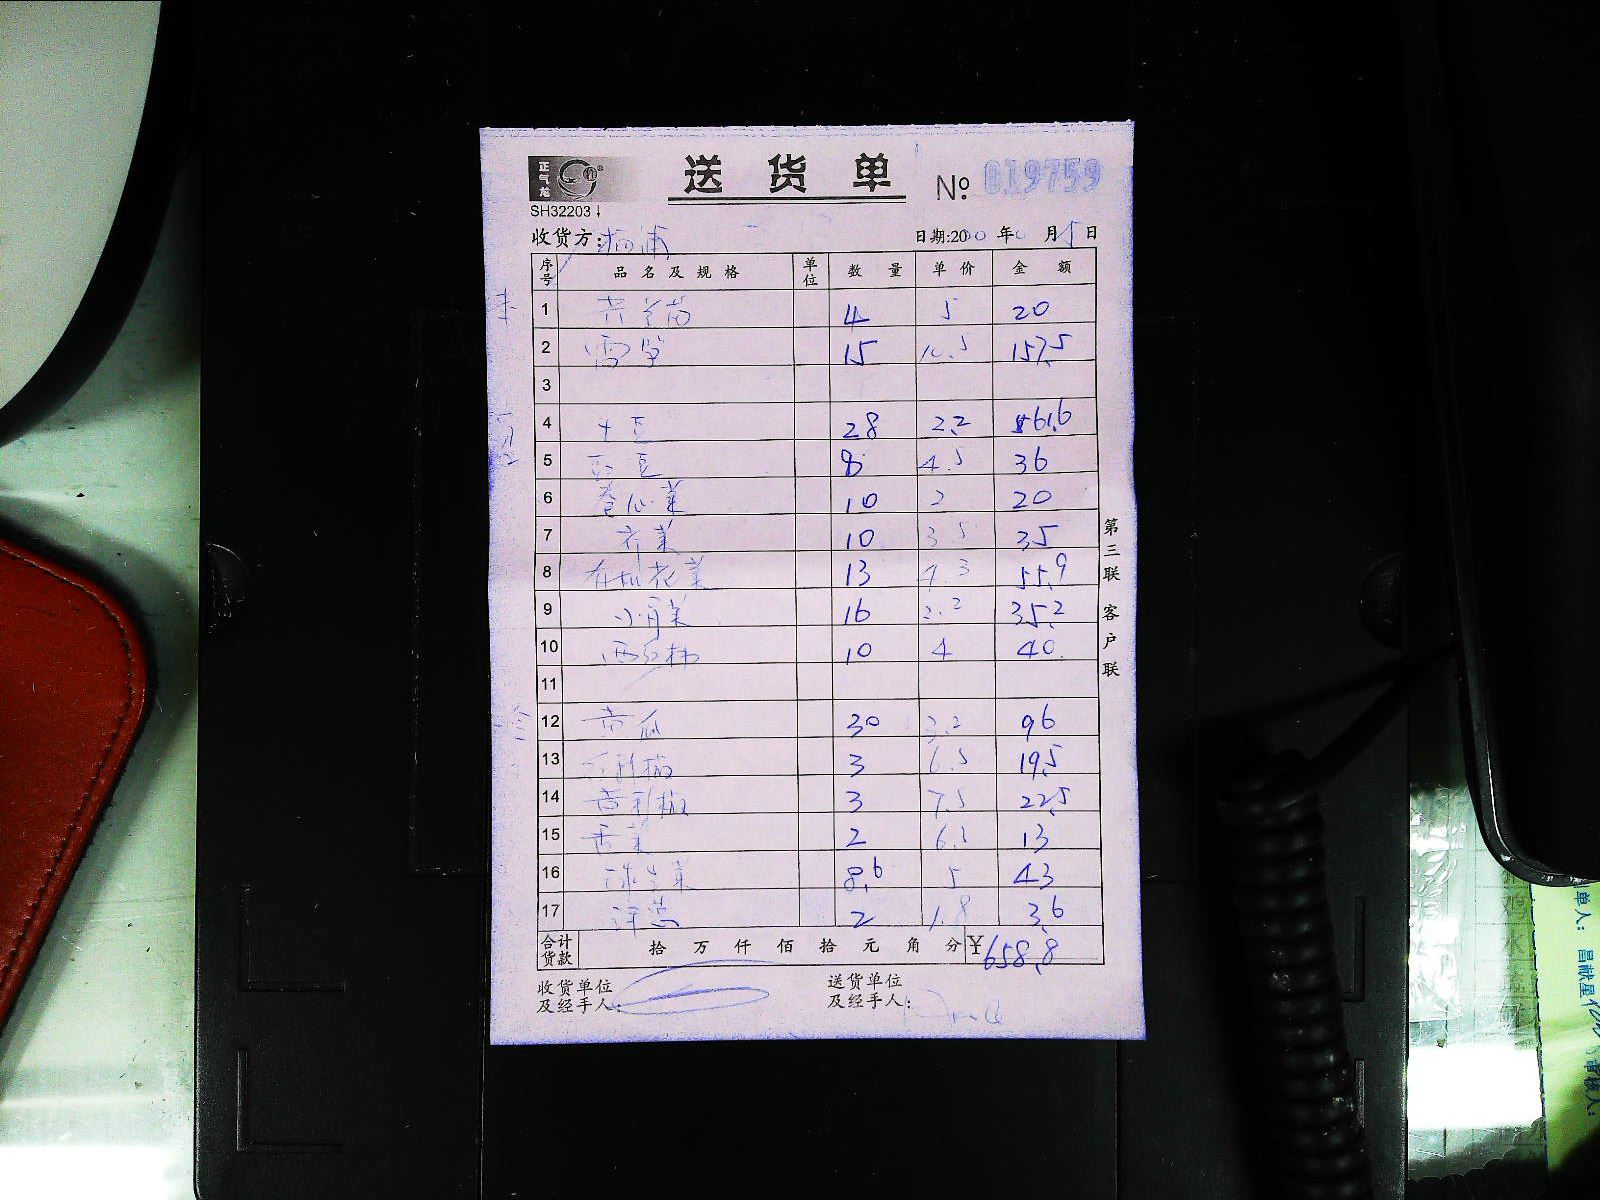 正气龙
送 货 单
№ 019759
SH32203
收货方: 杨浦
日期:20 年 月 5 日
序号 品 名 及 规 格 单位 数 量 单 价 金 额
1 4 5 20
2 15 10.5 157.5
3
4 土豆 28 2.2 61.6
5 8 4.5 36
6 卷心菜 10 2 20
7 芹菜 10 3.5 35
8 有机花菜 13 4.3 55.9
9 小青菜 16 2.2 35.2
10 西红柿 10 4 40
11
12 黄瓜 30 3.2 96
13 3 6.5 19.5
14 黄彩椒 3 7.5 22.5
15 香菜 2 6.5 13
16 球生菜 8.6 5 43
17 洋葱 2 1.8 3.6
合计货款 拾 万 仟 佰 拾 元 角 分 ¥658.8
收货单位及经手人:
送货单位及经手人:
第三联 客户联
单人: 昌献星
审核人: